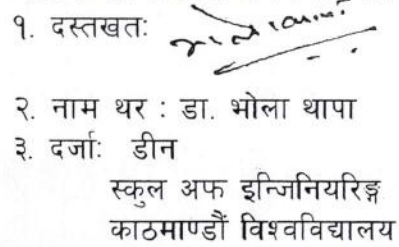 १. दस्तखतः
२. नाम थर : डा. भोला थापा
३. दर्जाः डीन
स्कुल अफ इन्जिनियरिङ्ग
काठमाण्डौं विश्वविद्यालय